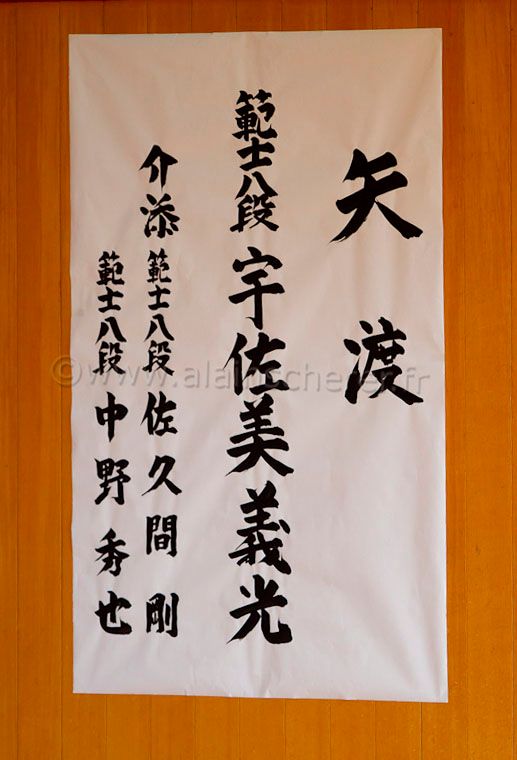 矢渡
範士八段 宇佐美義光
介添 範士八段 佐久間剛
範士八段 中野秀也